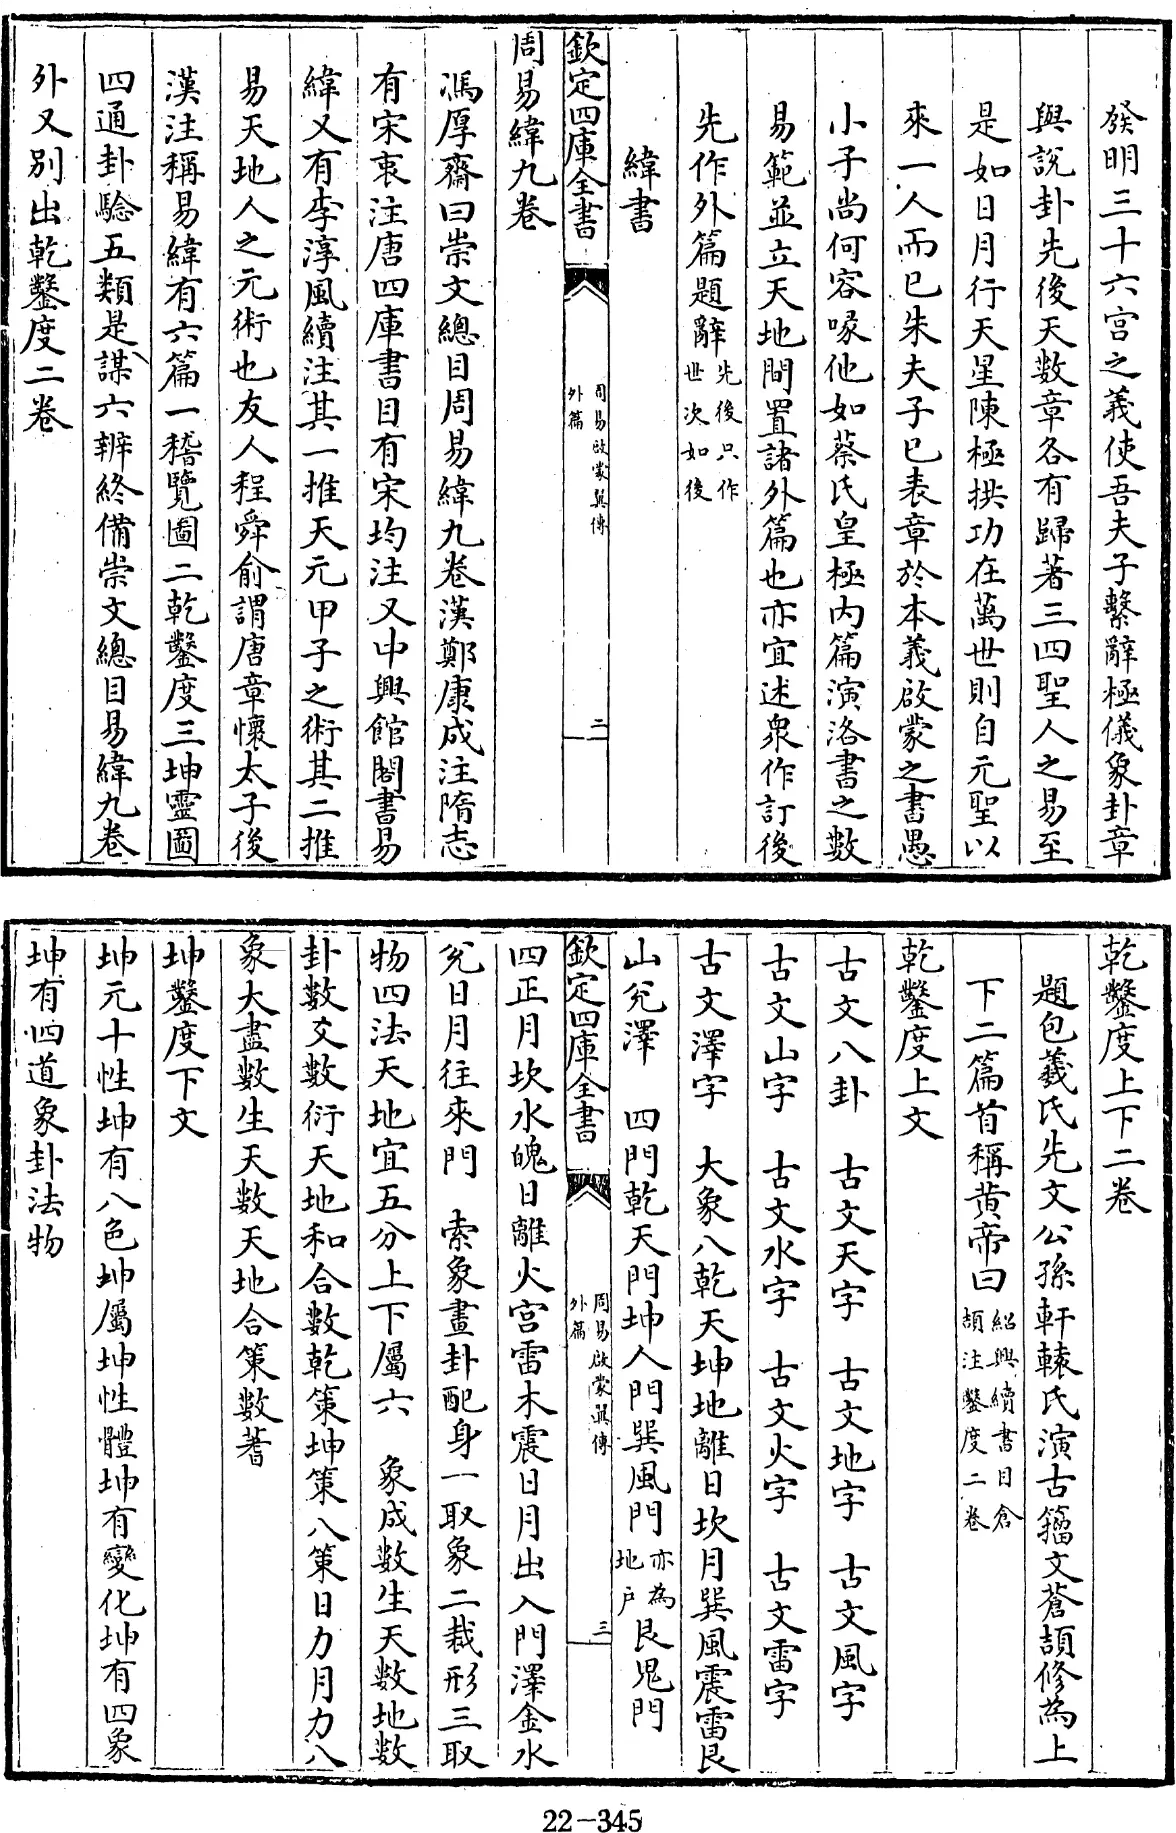 發明三十六宫之義使吾夫子繫辭極儀象卦章
與說卦先後天數章各有歸著三四聖人之易至
是如日月行天星陳極拱功在萬世則自元聖以
來一人而已朱夫子已表章於本義啟蒙之書愚
小子尚何容喙他如蔡氏皇極内篇演洛書之數
易範並立天地間置諸外篇也亦宜述衆作訂後
先作外篇題辭先後只作
世次如後
緯書
欽定四庫全書
周易啟蒙翼傳
外篇
二
周易緯九卷
馮厚齋曰崇文總目周易緯九卷漢鄭康成注隋志
有宋衷注唐四庫書目有宋均注又中興館閣書易
緯又有李淳風續注其一推天元甲子之術其二推
易天地人之元術也友人程舜俞謂唐章懷太子後
漢注稱易緯有六篇一稽覽圖二乾鑿度三坤靈圖
四通卦驗五類是謀六辨終備崇文總目易緯九卷
外又别出乾鑿度二卷
乾鑿度上下二卷
題包羲氏先文公孫軒轅氏演古籀文蒼頡修為上
下二篇首稱黄帝曰紹興續書目倉
頡注鑿度二卷
乾鑿度上文
古文八卦 古文天字 古文地字 古文風字
古文山字 古文水字 古文火字 古文雷字
古文澤字 大象八乾天坤地離日坎月巽風震雷艮
山兊澤 四門乾天門坤人門巽風門亦為
地户艮鬼門
欽定四庫全書
周易啟蒙翼傳
外篇
三
四正月坎水魄日離火宫雷木震日月出入門澤金水
兊日月往來門 索象畫卦配身一取象二裁形三取
物四法天地宜五分上下屬六 象成數生天數地數
卦數爻數衍天地和合數乾策坤策八策日力月力八
象大盡數生天數天地合策數蓍
坤鑿度下文
坤元十性坤有八色坤屬坤性體坤有變化坤有四象
坤有四道象卦法物
22-345